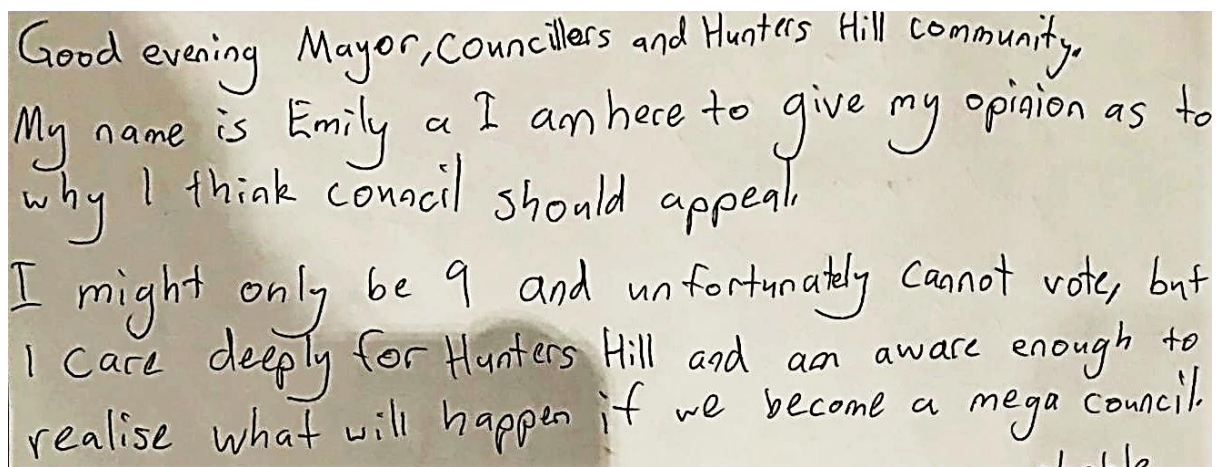 Good evening Mayor, Councillers and Hunters Hill community.
My name is Emily a I am here to give my opinion as to
why I think council should appeal.
I might only be 9 and unfortunately cannot vote, but
I care deeply for Hunters Hill and am aware enough to
realise what will happen if we become a mega council.